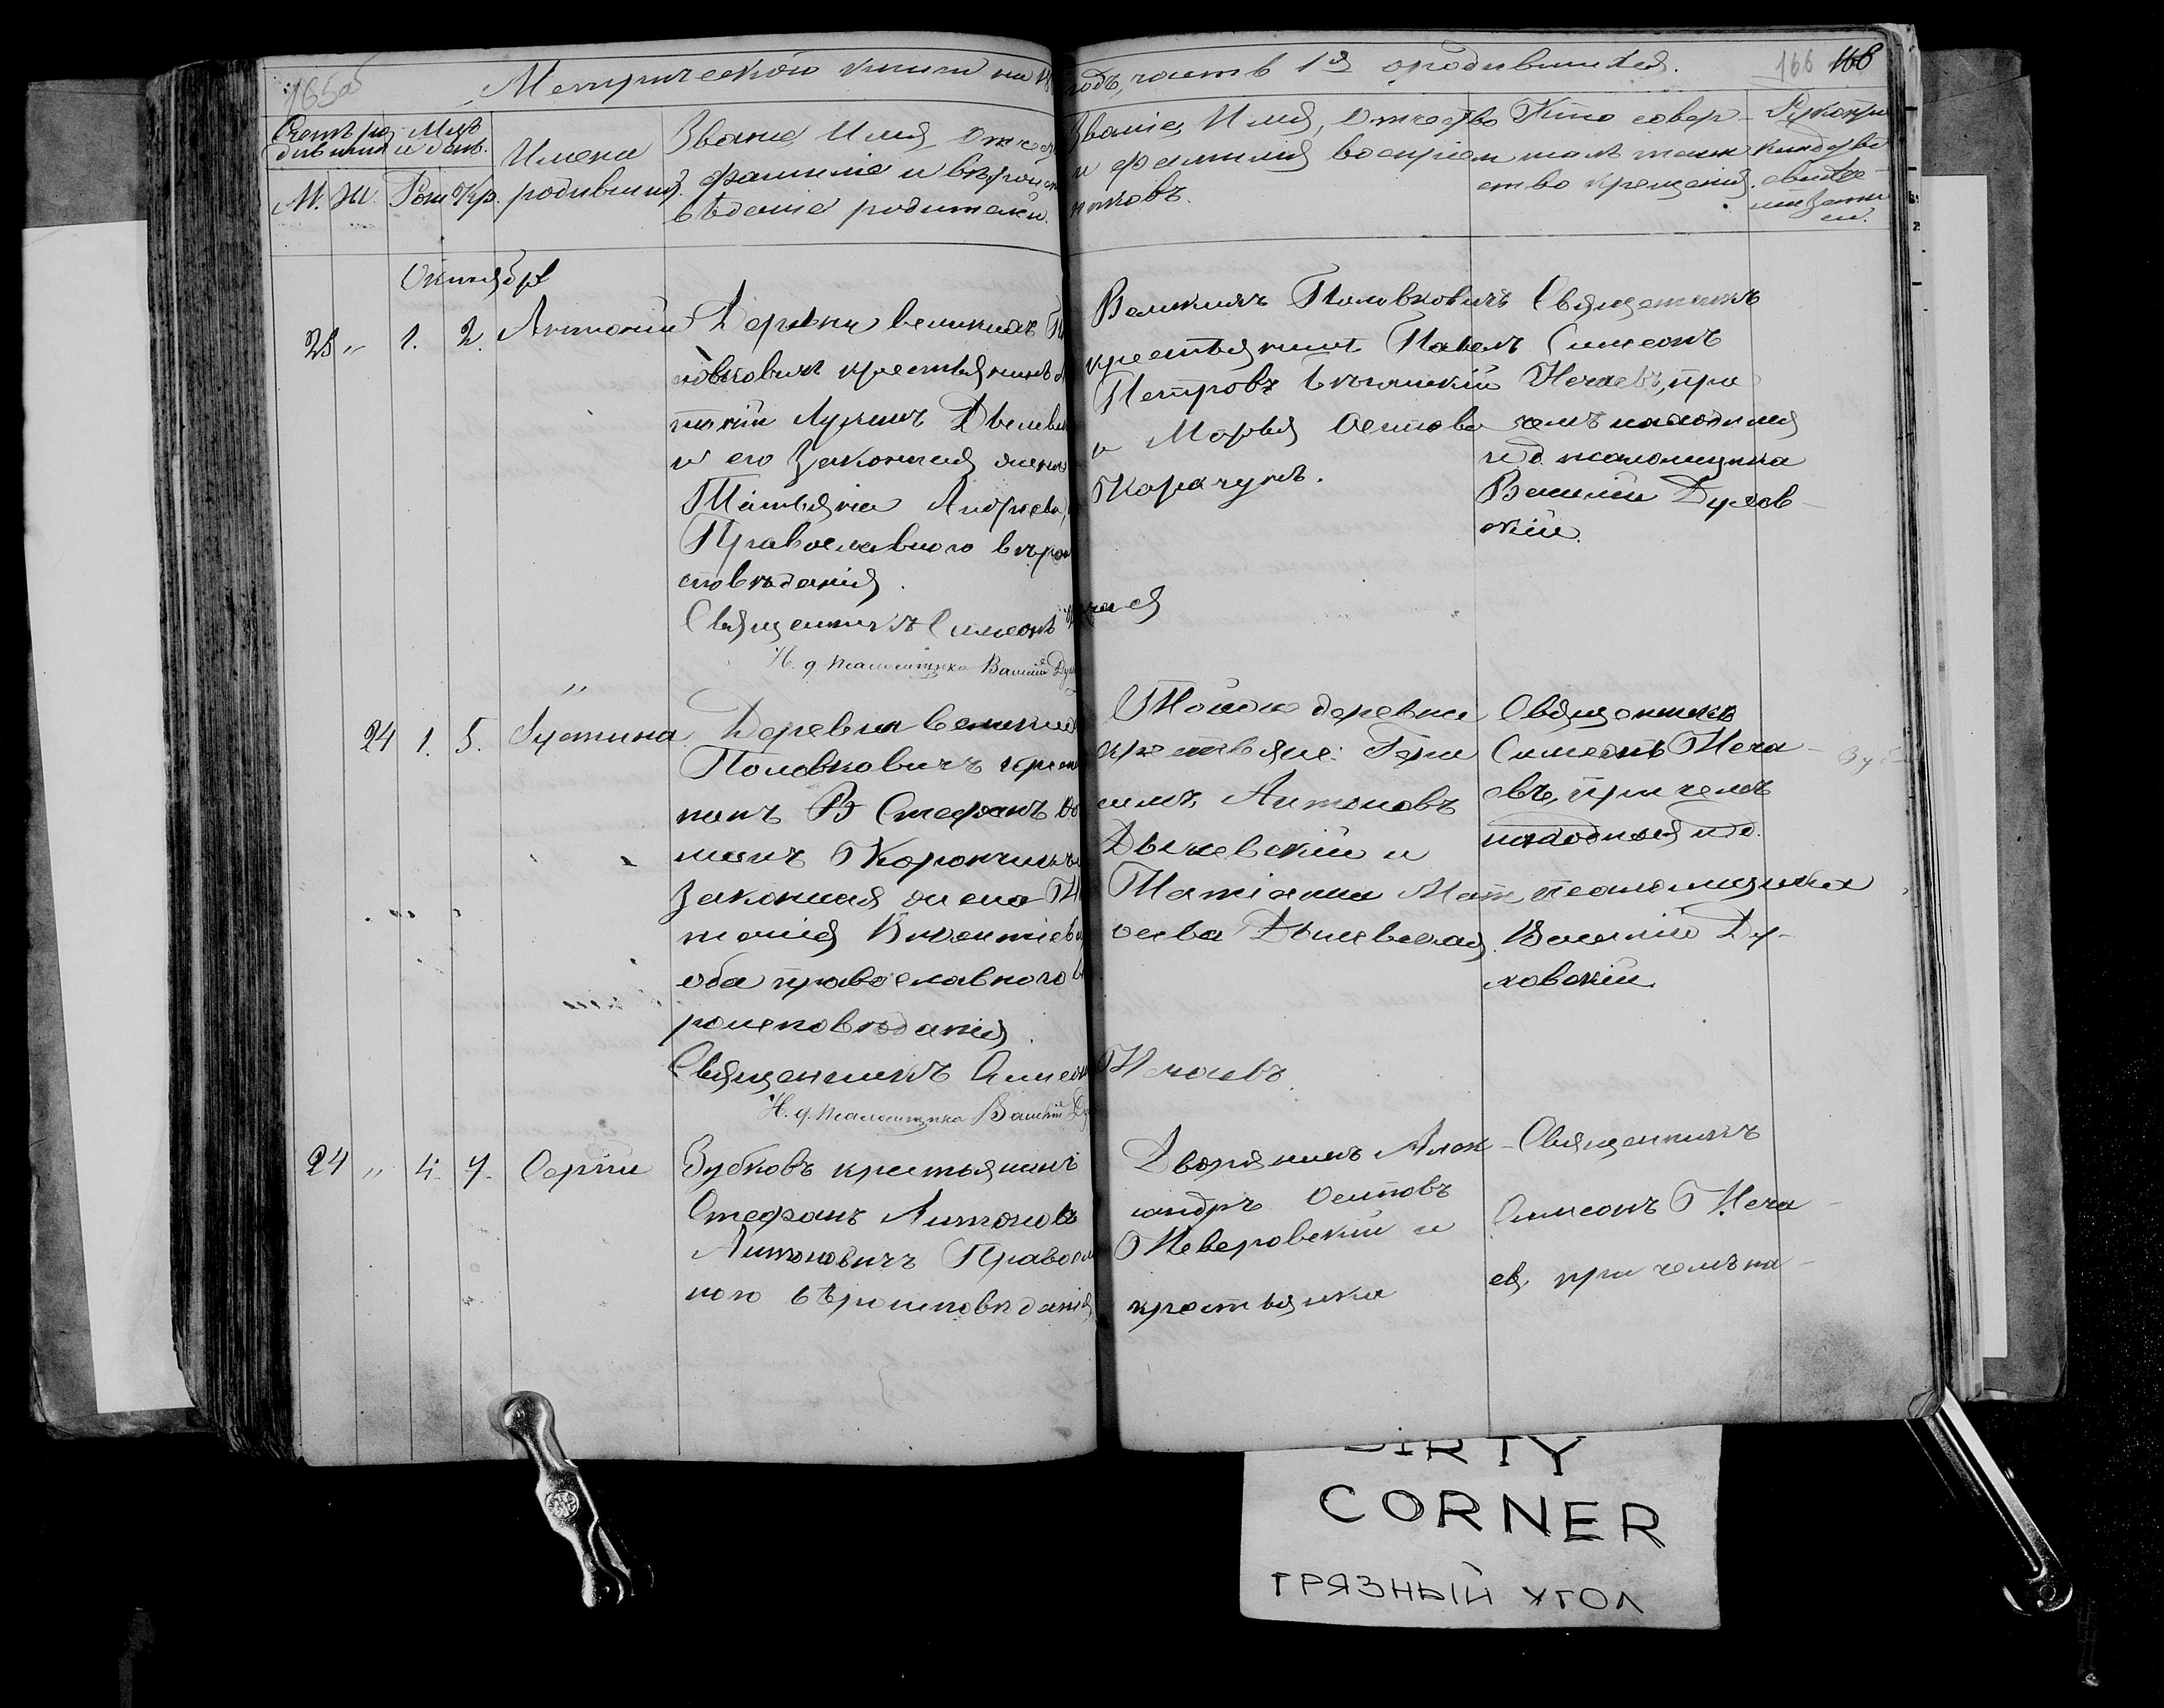 165об
Метрической книги на 18
годъ, часть 1я о родившихся.
166 168
Счетъ ро
дившихся
Мѣс.
и день.
М. Ж. Рож Кр.
Имена
родивших.
Званіе, Имя, Отчест
фамиліе и вѣроисп
вѣданіе родителей.
Званіе, Имя, Отчество
и фамилія воспріем
никовъ.
Кто совер-
шалъ таин
ство крещенія.
Рукопри
кладство
свидѣ
Октябрь
28 „ 1. 2. Антоній
Деревни Великихъ
ковковичъ крестьянинъ
Лукинъ
и его Законная жена
Татьяна Андреева,
Православнаго вѣрои
сповѣданія.
Священникъ Симеонъ
Н. д. псаломщика Василій
Великихъ Половковичъ
крестьянинъ Павелъ
Петровъ
и Марья Осипова
Корачунъ.
Священникъ
Симеонъ
Нечаевъ, при
чемъ находился
и д псаломщика
Василій Духов-
скій.
„
24 1. 5. Іустина
Деревни Великихъ
Половковичъ крест
нинъ Стефанъ
Законная жена
оба православнаго в
роисповѣданія
Священникъ Симеон
Н. д. псаломщика Василій
Тойже деревни
крестьяне: Гера
симъ Антоновъ
Дышевскій и
Татіанна Мат
ѳеева Дышевская
Священникъ
Симеонъ Неча-
евъ, при чемъ
находился и д.
псаломщика
Василій Ду-
ховскій.
Нечаевъ.
24 „ 4. 7. Сергій
Зубковъ крестьянинъ
Стефанъ Антоновъ
Антоновичъ Правосл
наго вѣроисповѣданія
Дворянинъ Алек-
сандръ Осиповъ
Неверовскій и
крестьянка
Священникъ
Симеонъ Неча-
ев, при чемъ на-
DIRTY
CORNER
ГРЯЗНЫЙ УГОЛ